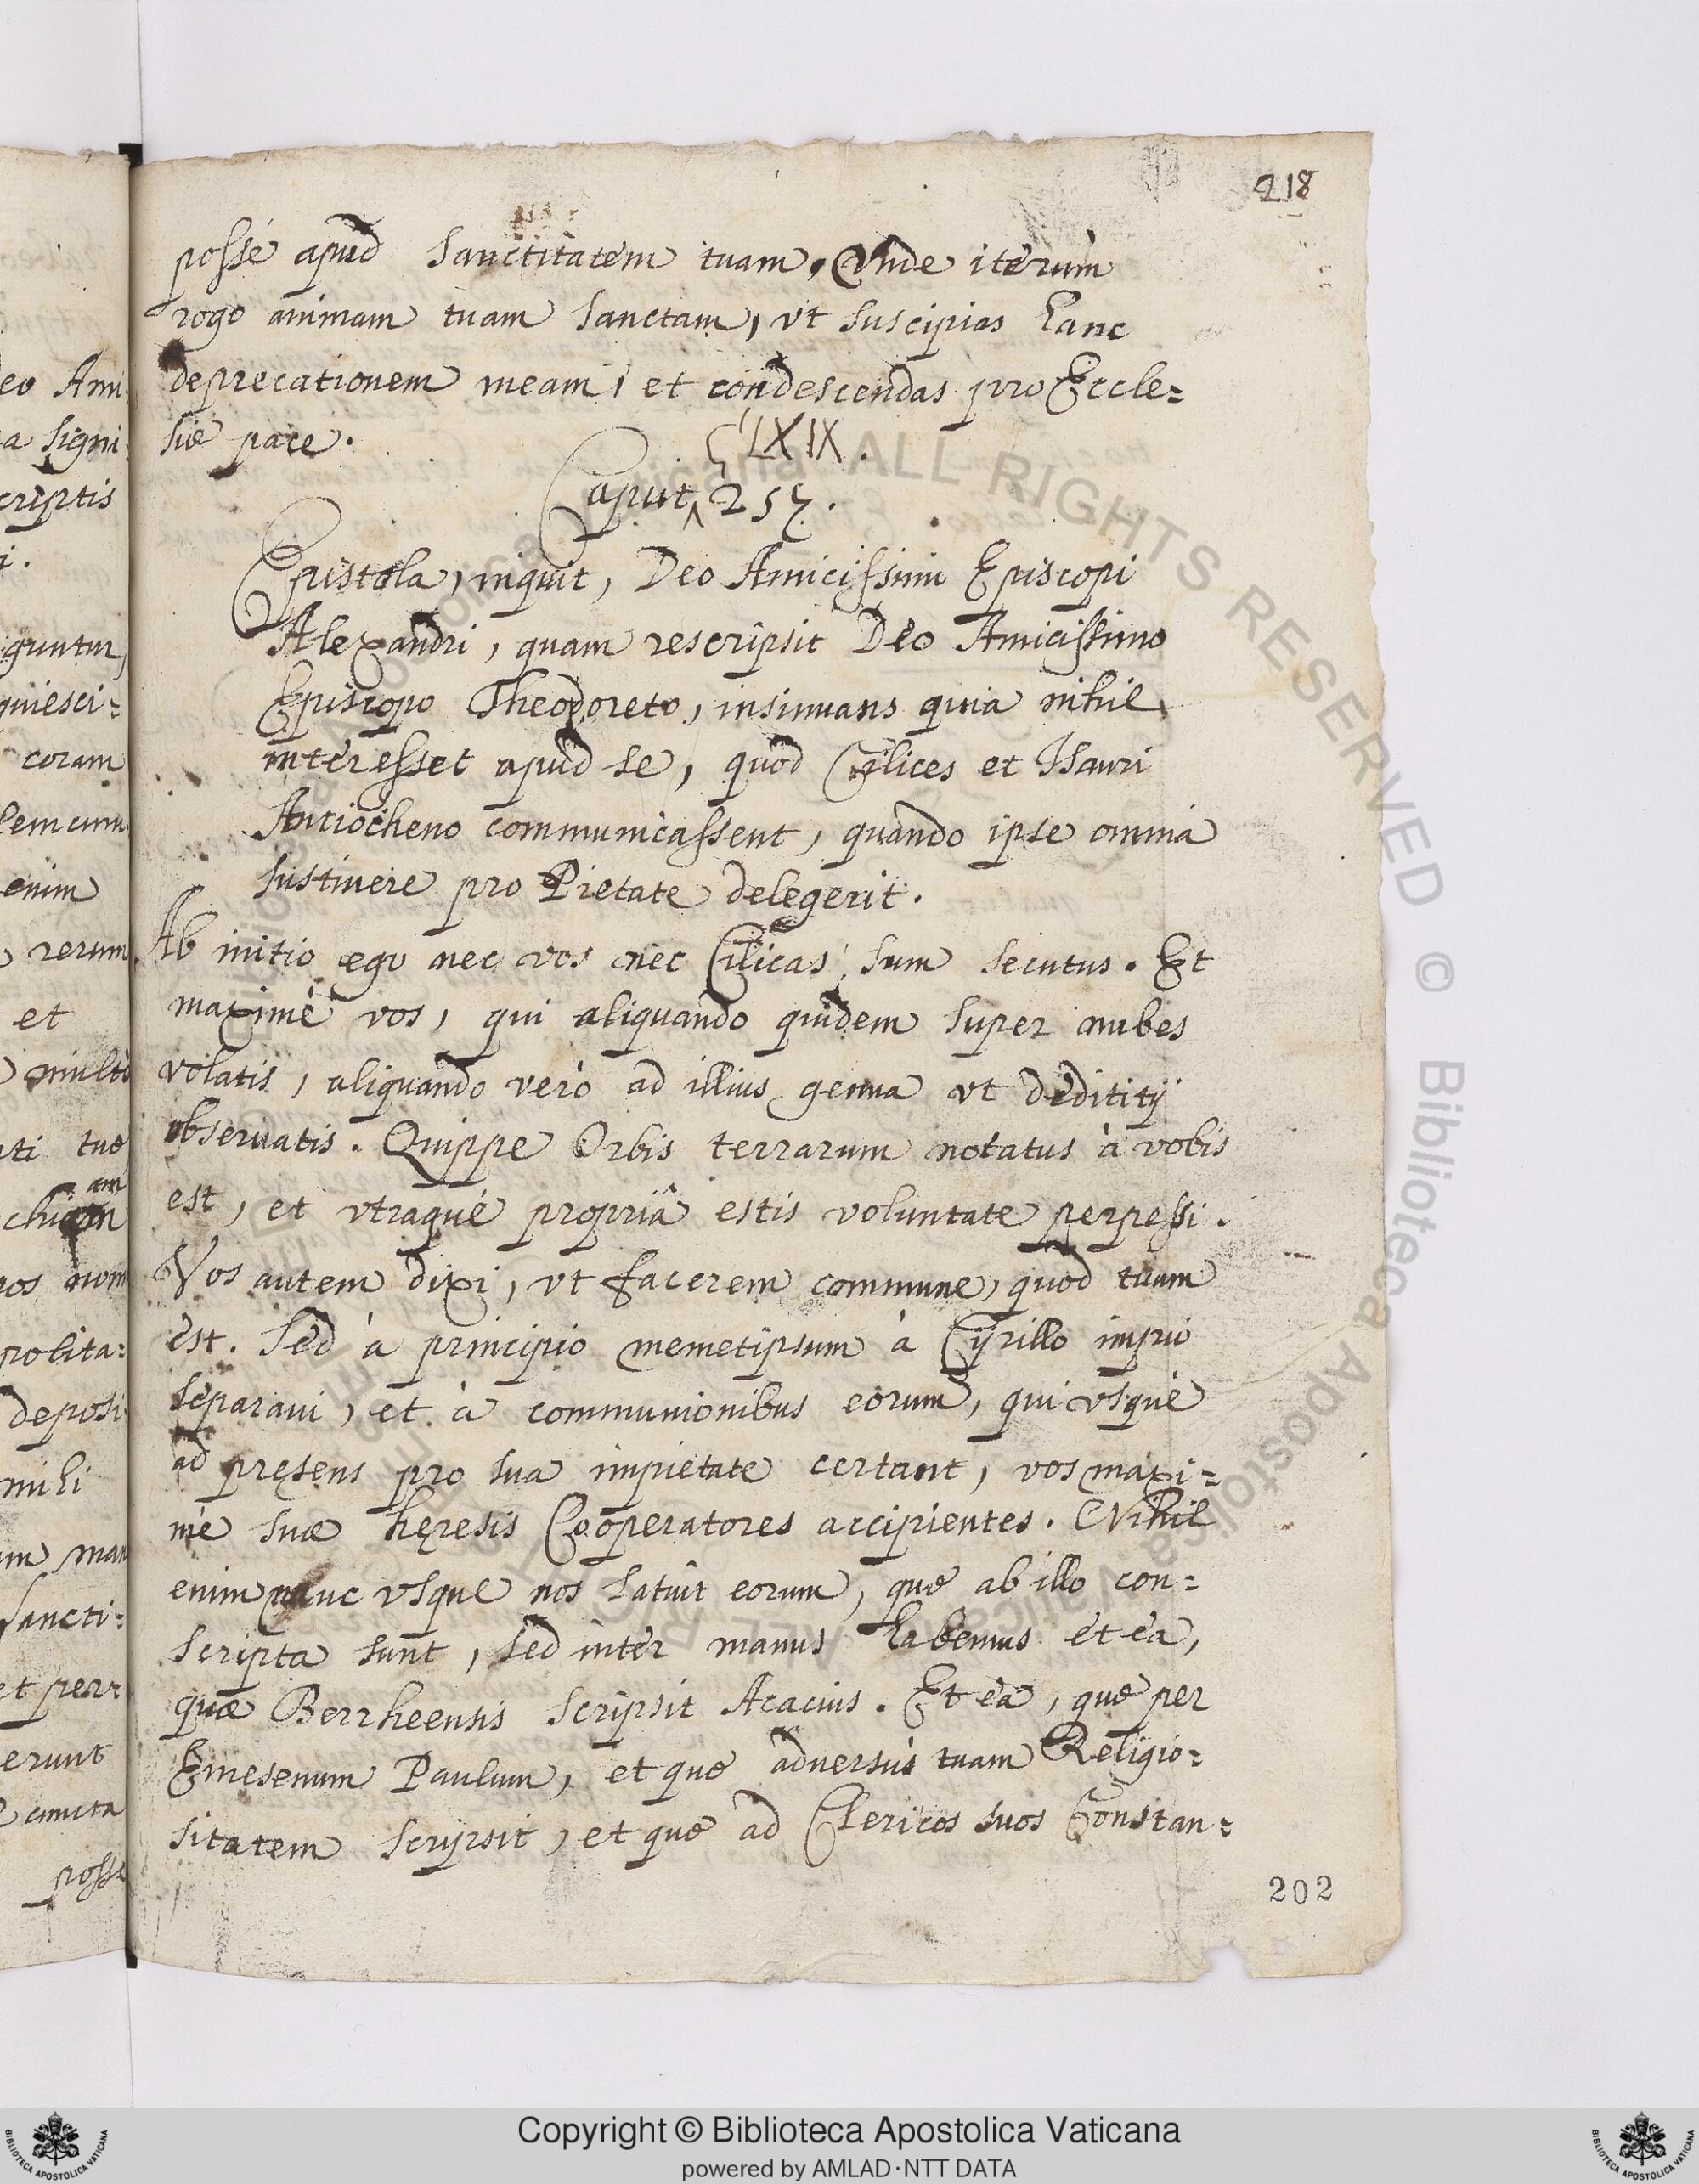 218
posse apud Sanctitatem tuam, Vnde iterùm
rogo animam tuam sanctam, vt suscipias hanc
deprecationem meam, et condescendas pro Eccle=
siæ pace.
CLXIX.
Caput 257.
Epistola, inquit, Deo Amicissimi Episcopi
Alexandri, quam rescripsit Deo Amicissimo
Episcopo Theodoreto, insinuans quia nihil
interesset apud se, quod Cilices et Isauri
Antiocheno communicassent, quando ipse omnia
sustinere pro Pietate delegerit.
Ab initio ego nec vos nec Cilicas sum secutus. Et
maximè vos, qui aliquando quidem super nubes
volatis, aliquando verò ad illius genua vt dedititÿ
obseruatis. Quippe Orbis terrarum notatus à vobis
est, et vtraque propriâ estis voluntate perpessi.
Vos autem dixi, vt facerem commune, quod tuum
est. Sed à principio memetipsum à Cyrillo impio
separaui, et à communionibus eorum, qui vsque
ad pręsens pro sua impietate certant, vos maxi=
mè suæ hęresis Cooperatores accipientes. Nihil
enim nunc vsque nos latuit eorum, quæ ab illo con=
scripta sunt, sed inter manus habemus et ea,
quæ Berrheensis scripsit Acacius. Et ea, quæ per
Emesenum Paulum, et quæ aduersus tuam Religio=
sitatem scripsit, et quæ ad Clericos suos Constan=
202
eo Ami
a signi
criptis
i.
guntur,
quiesci=
coram
lem cum
enim
rerum
et
multo
ti tuæ
am
nos non
polita=
deposi
mihi
sancti=
et per=
erunt
cuncta
posse
Copyright © Biblioteca Apostolica Vaticana
powered by AMLAD·NTT DATA